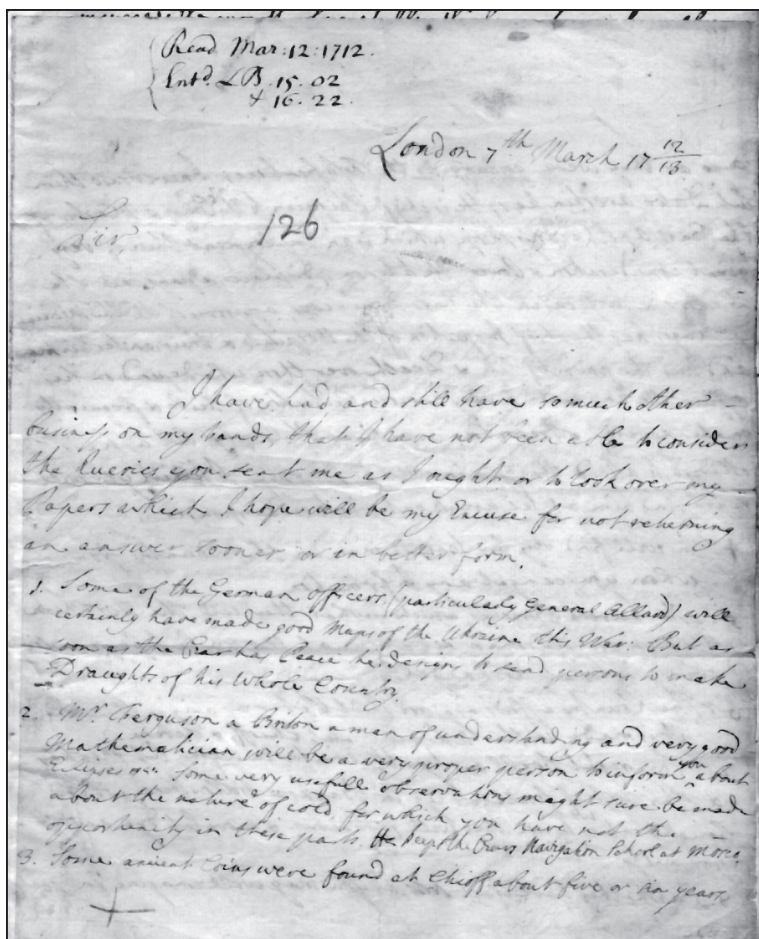 Read Mar: 12: 1712.
Entd. LB. 15. 02
& 16. 22.
London 7th March 17 12/13
Sir
126
I have had and still have so much other
business on my hands, that I have not been able to consider
the Queries you sent me as I ought or to look over my
Papers which I hope will be my Excuse for not returning
an answer sooner or in better form.
1. Some of the German officers (particularly General Allard) will
certainly have made good maps of the Ukraine this War: But as
soon as the Czar has Peace he designs to send persons to make
Draughts of his whole Country.
2. Mr. Ferguson a Briton a man of understanding and very good
Mathematician will be a very proper person to inform you about
Eclipses Some very usefull observations might sure be made
about the nature of cold for which you have not the
opportunity in these parts. He keeps the Czars Navigation School at
3. Some ancient Coins were found at Chioff about five or six years